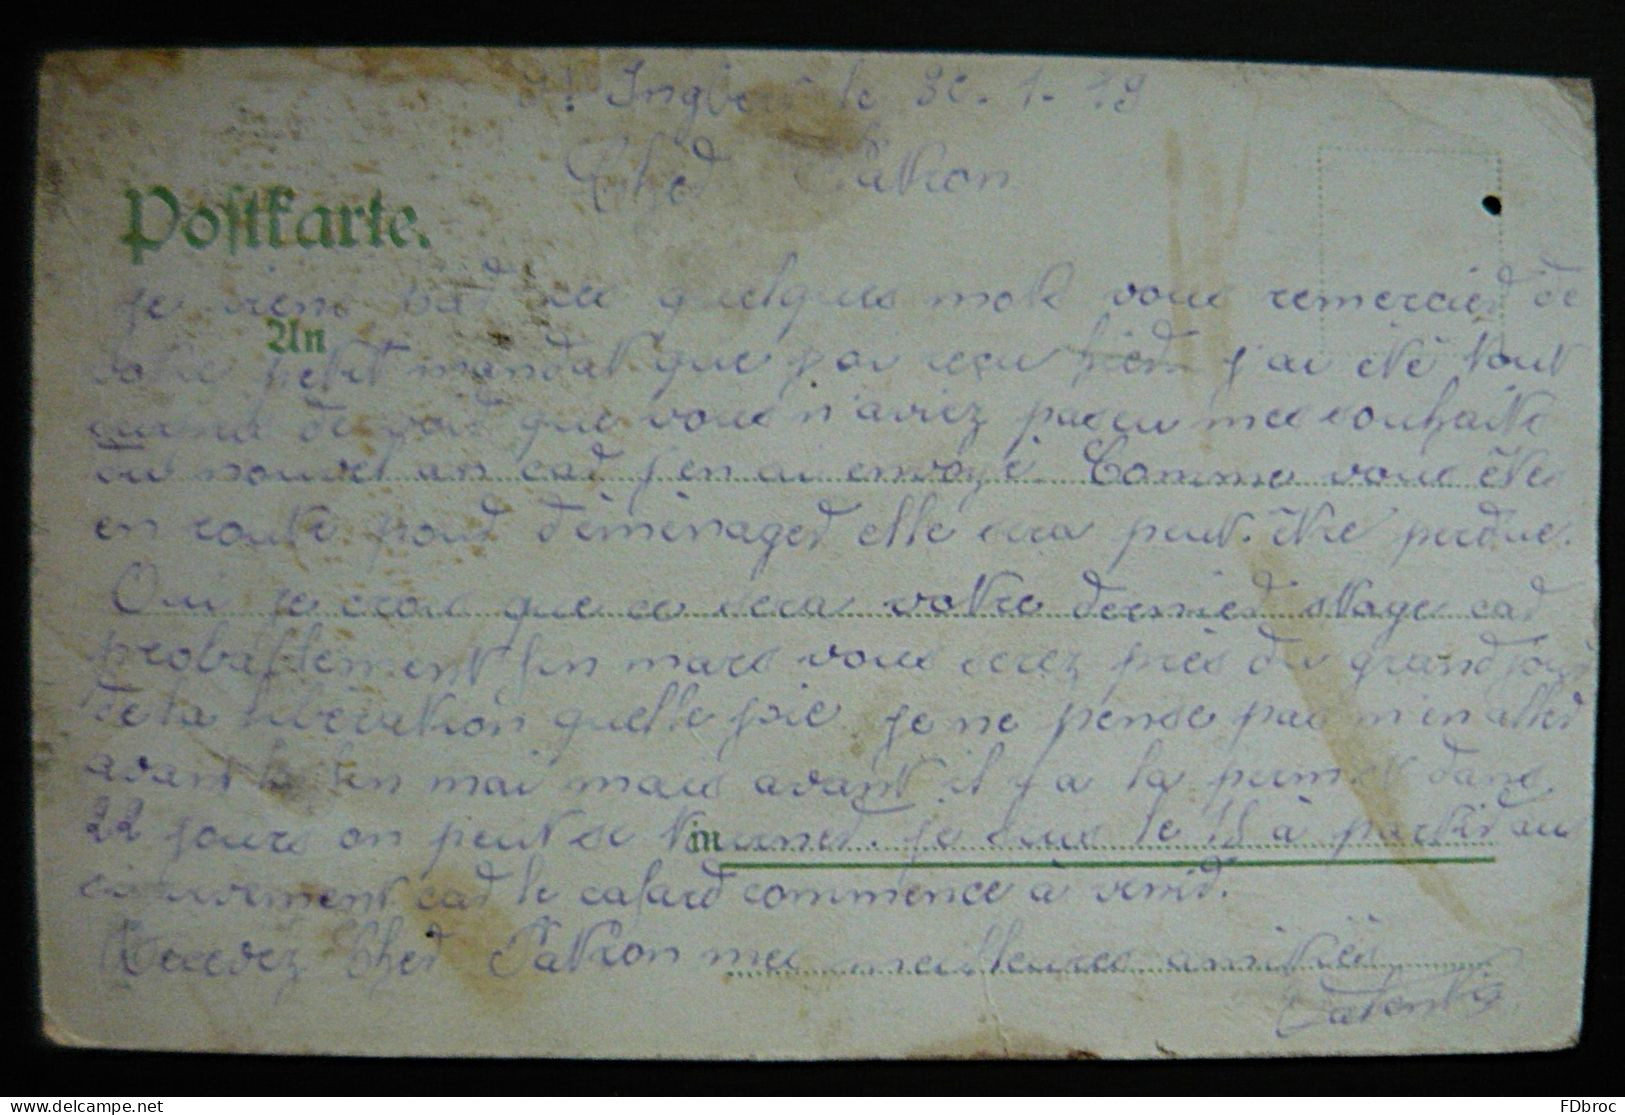 St Ingbert le 30.1.19
Cher Patron
Postkarte.
je viens par ces quelques mots vous remercier de
An
votre petit mandat que j'ai reçu hier j'ai été tout
surpris de voir que vous n'aviez pas eu mes souhaits
du nouvel an car j'en ai envoyé. Comme vous êtes
en route pour déménager elle sera peut-être perdue.
Oui je crois que ce sera votre dernier stage car
probablement fin mars vous serez près du grand jour
de la libération quelle joie je ne pense pas m'en aller
avant la fin mai mais avant il y a la perme et dans
22 jours on peut se tourner. je suis le 18 à partir au
in
car le cafard commence à venir.
Recevez Cher Patron mes meilleures amitiés
FDbroc